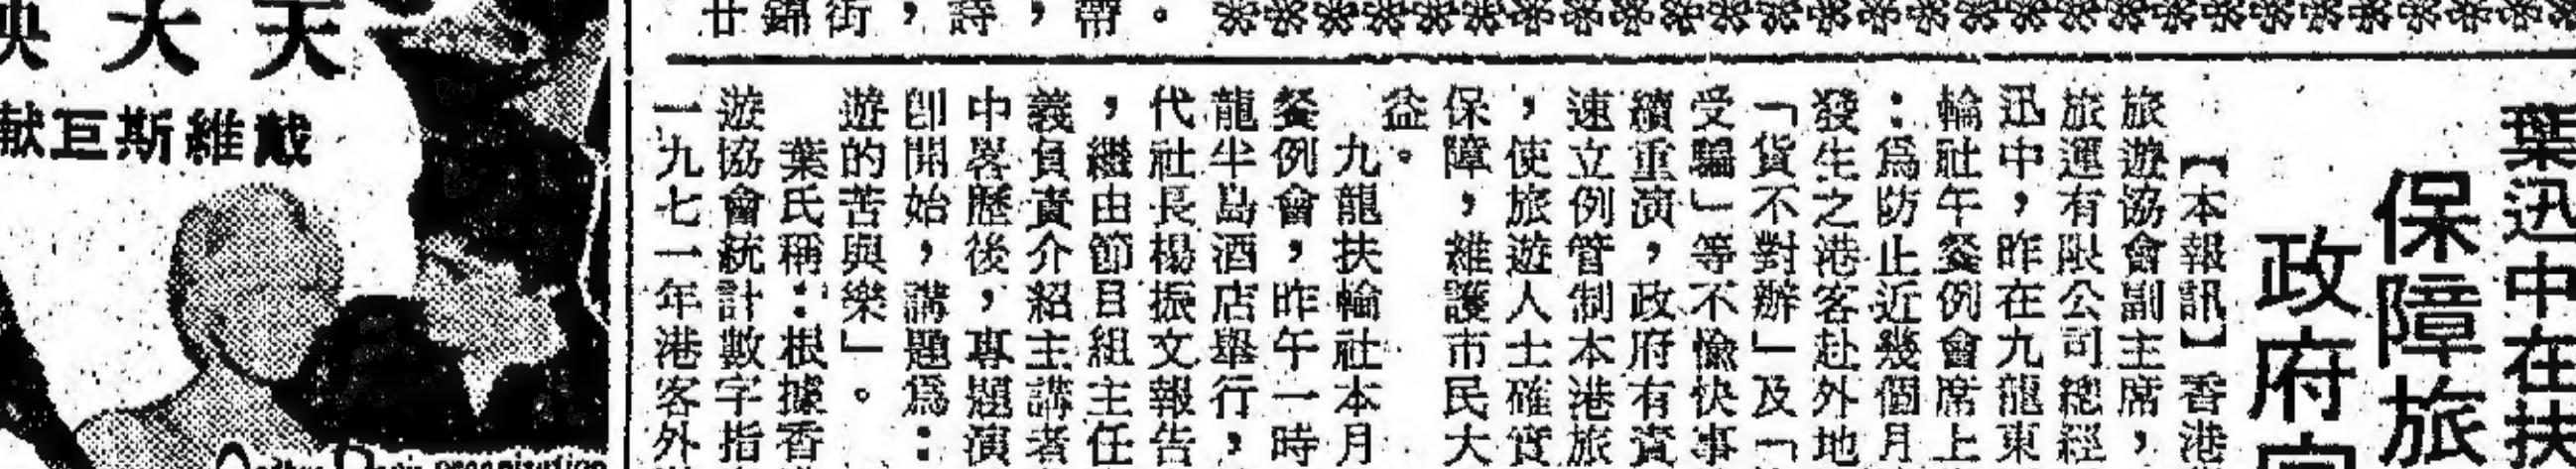 葉迅中在扶
保障旅
政府
【本報訊】香港
旅遊協會副主席，
旅運有限公司總經
迅中，昨在九龍東
輪社午餐例會席上
：爲防止近幾個月
發生之港客赴外地
「貨不對辦」及「
受騙」等不愉快事
續重演，政府有責
速立例管制本港旅
，使旅遊人士確實
保障，維護市民大
益。
九龍扶輪社本月
餐例會，昨午一時
龍半島酒店舉行，
代社長楊振文報告
，繼由節目組主任
義負責介紹主講者
中畧歷後，專題演
卽開始，講題爲：
遊的苦與樂」。
葉氏稱：根據香
遊協會統計數字指
一九七一年港客外
帶。
，
詩
，
街
錦
廿
天大映
戴維斯巨献
organization